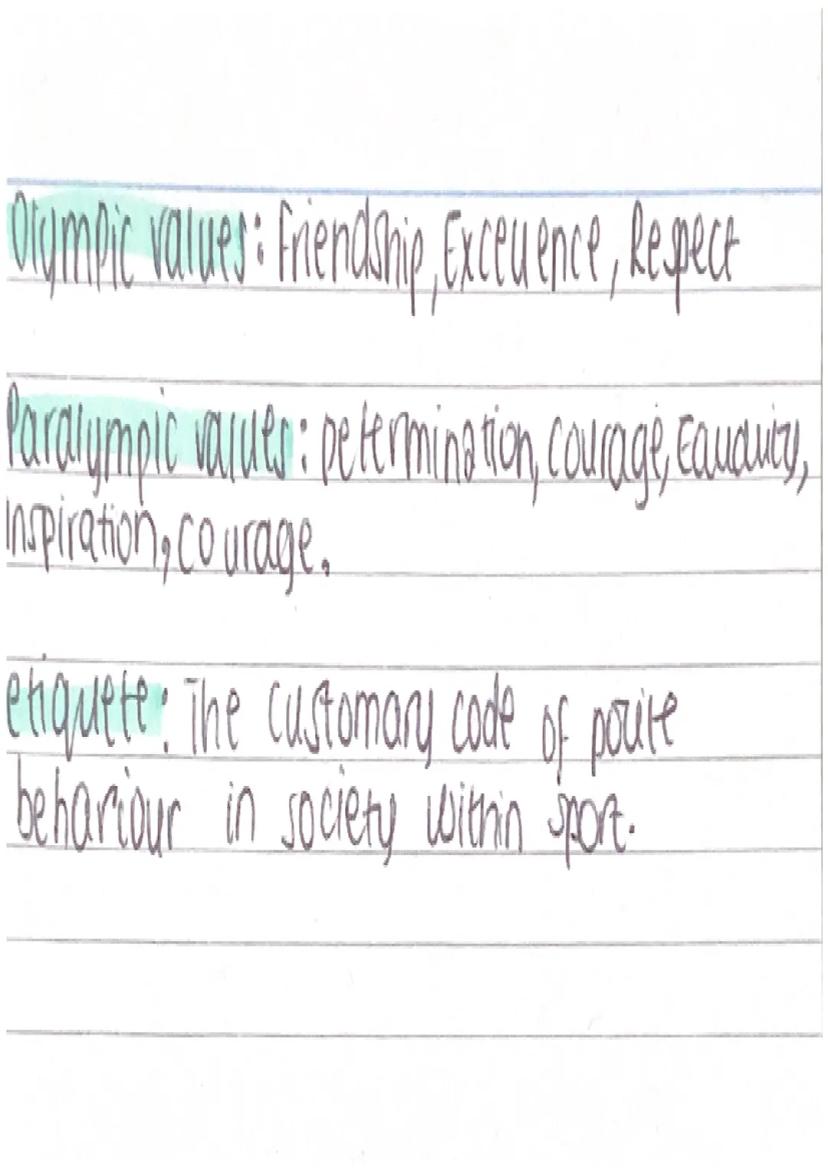 Olympic values: Friendship, Excellence, Respect
Paralympic values: Determination, courage, Equality,
inspiration, courage.
etiquete: The customary code of polite
behaviour in society within sport.